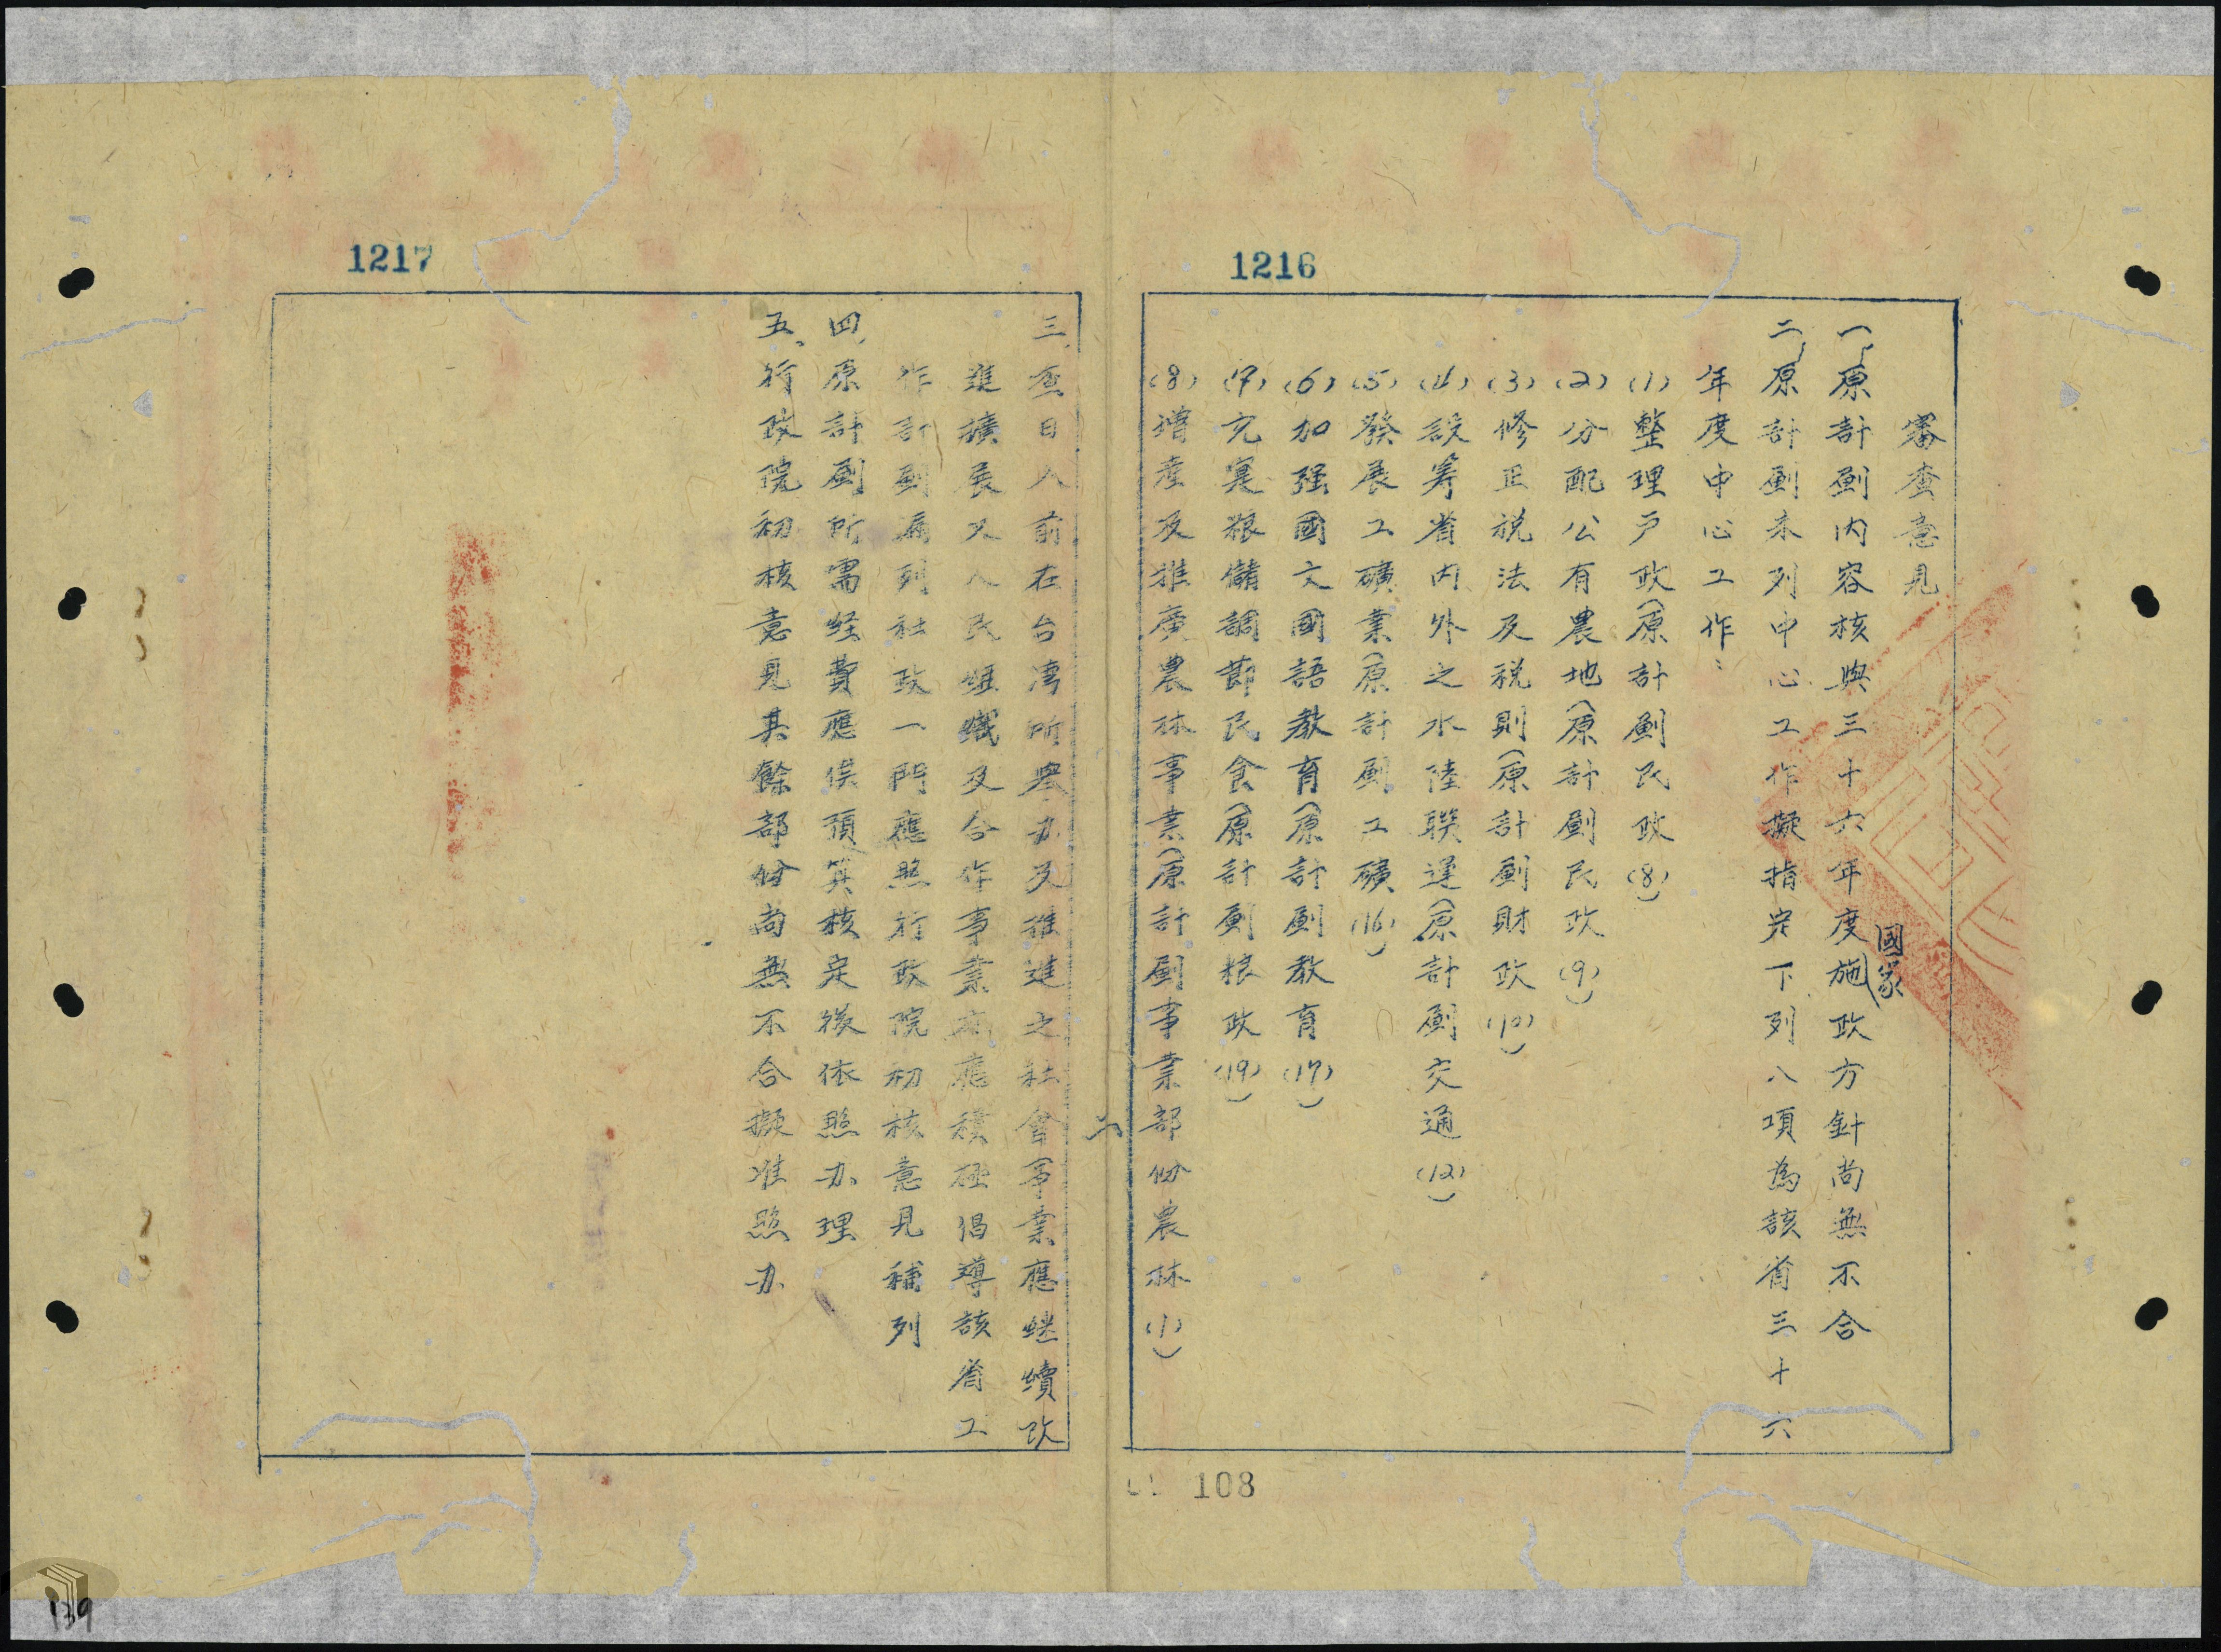 1216
審查意見
一、原計劃內容核與三十六年度國家施政方針尚無不合
二、原計劃未列中心工作擬指定下列八項為該省三十六
年度中心工作：
(1)整理戶政(原計劃民政(8))
(2)分配公有農地(原計劃民政(9))
(3)修正稅法及稅則(原計劃財政(10))
(4)設籌省內外之水陸聯運(原計劃交通(12))
(5)發展工礦業(原計劃工礦(16))
(6)加强國文國語教育(原計劃教育(17))
(7)充寔粮儲調節民食(原計劃粮政(19))
(8)增產及推廣農林事業(原計劃事業部份農林(1))
108
二
1217
三、查日人前在台灣所舉办及推進之社會事業應継續改
進擴展又人民組織及合作事業亦應積極倡導該省工
作計劃漏列社政一門應照行政院初核意見補列
四、原計劃所需経費應俟預算核定後依照办理
五、行政院初核意見其餘部份尚無不合擬准照办
139